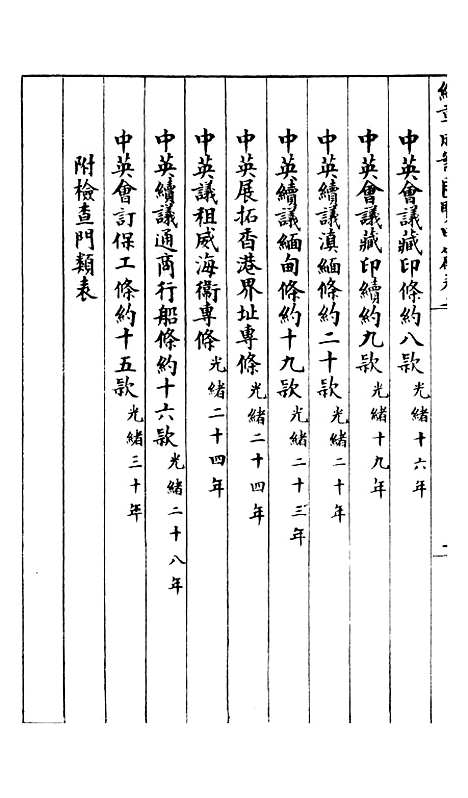 中英會議藏印條約八款 光緒十六年
中英會議藏印續約九款 光緒十九年
中英續議滇緬條約二十款 光緒二十年
中英續議緬甸條約十九款 光緒二十三年
中英展拓香港界址專條 光緒二十四年
中英議租威海衞專條 光緒二十四年
中英續議通商行船條約十六款 光緒二十八年
中英會訂保工條約十五款 光緒三十年
附檢查門類表